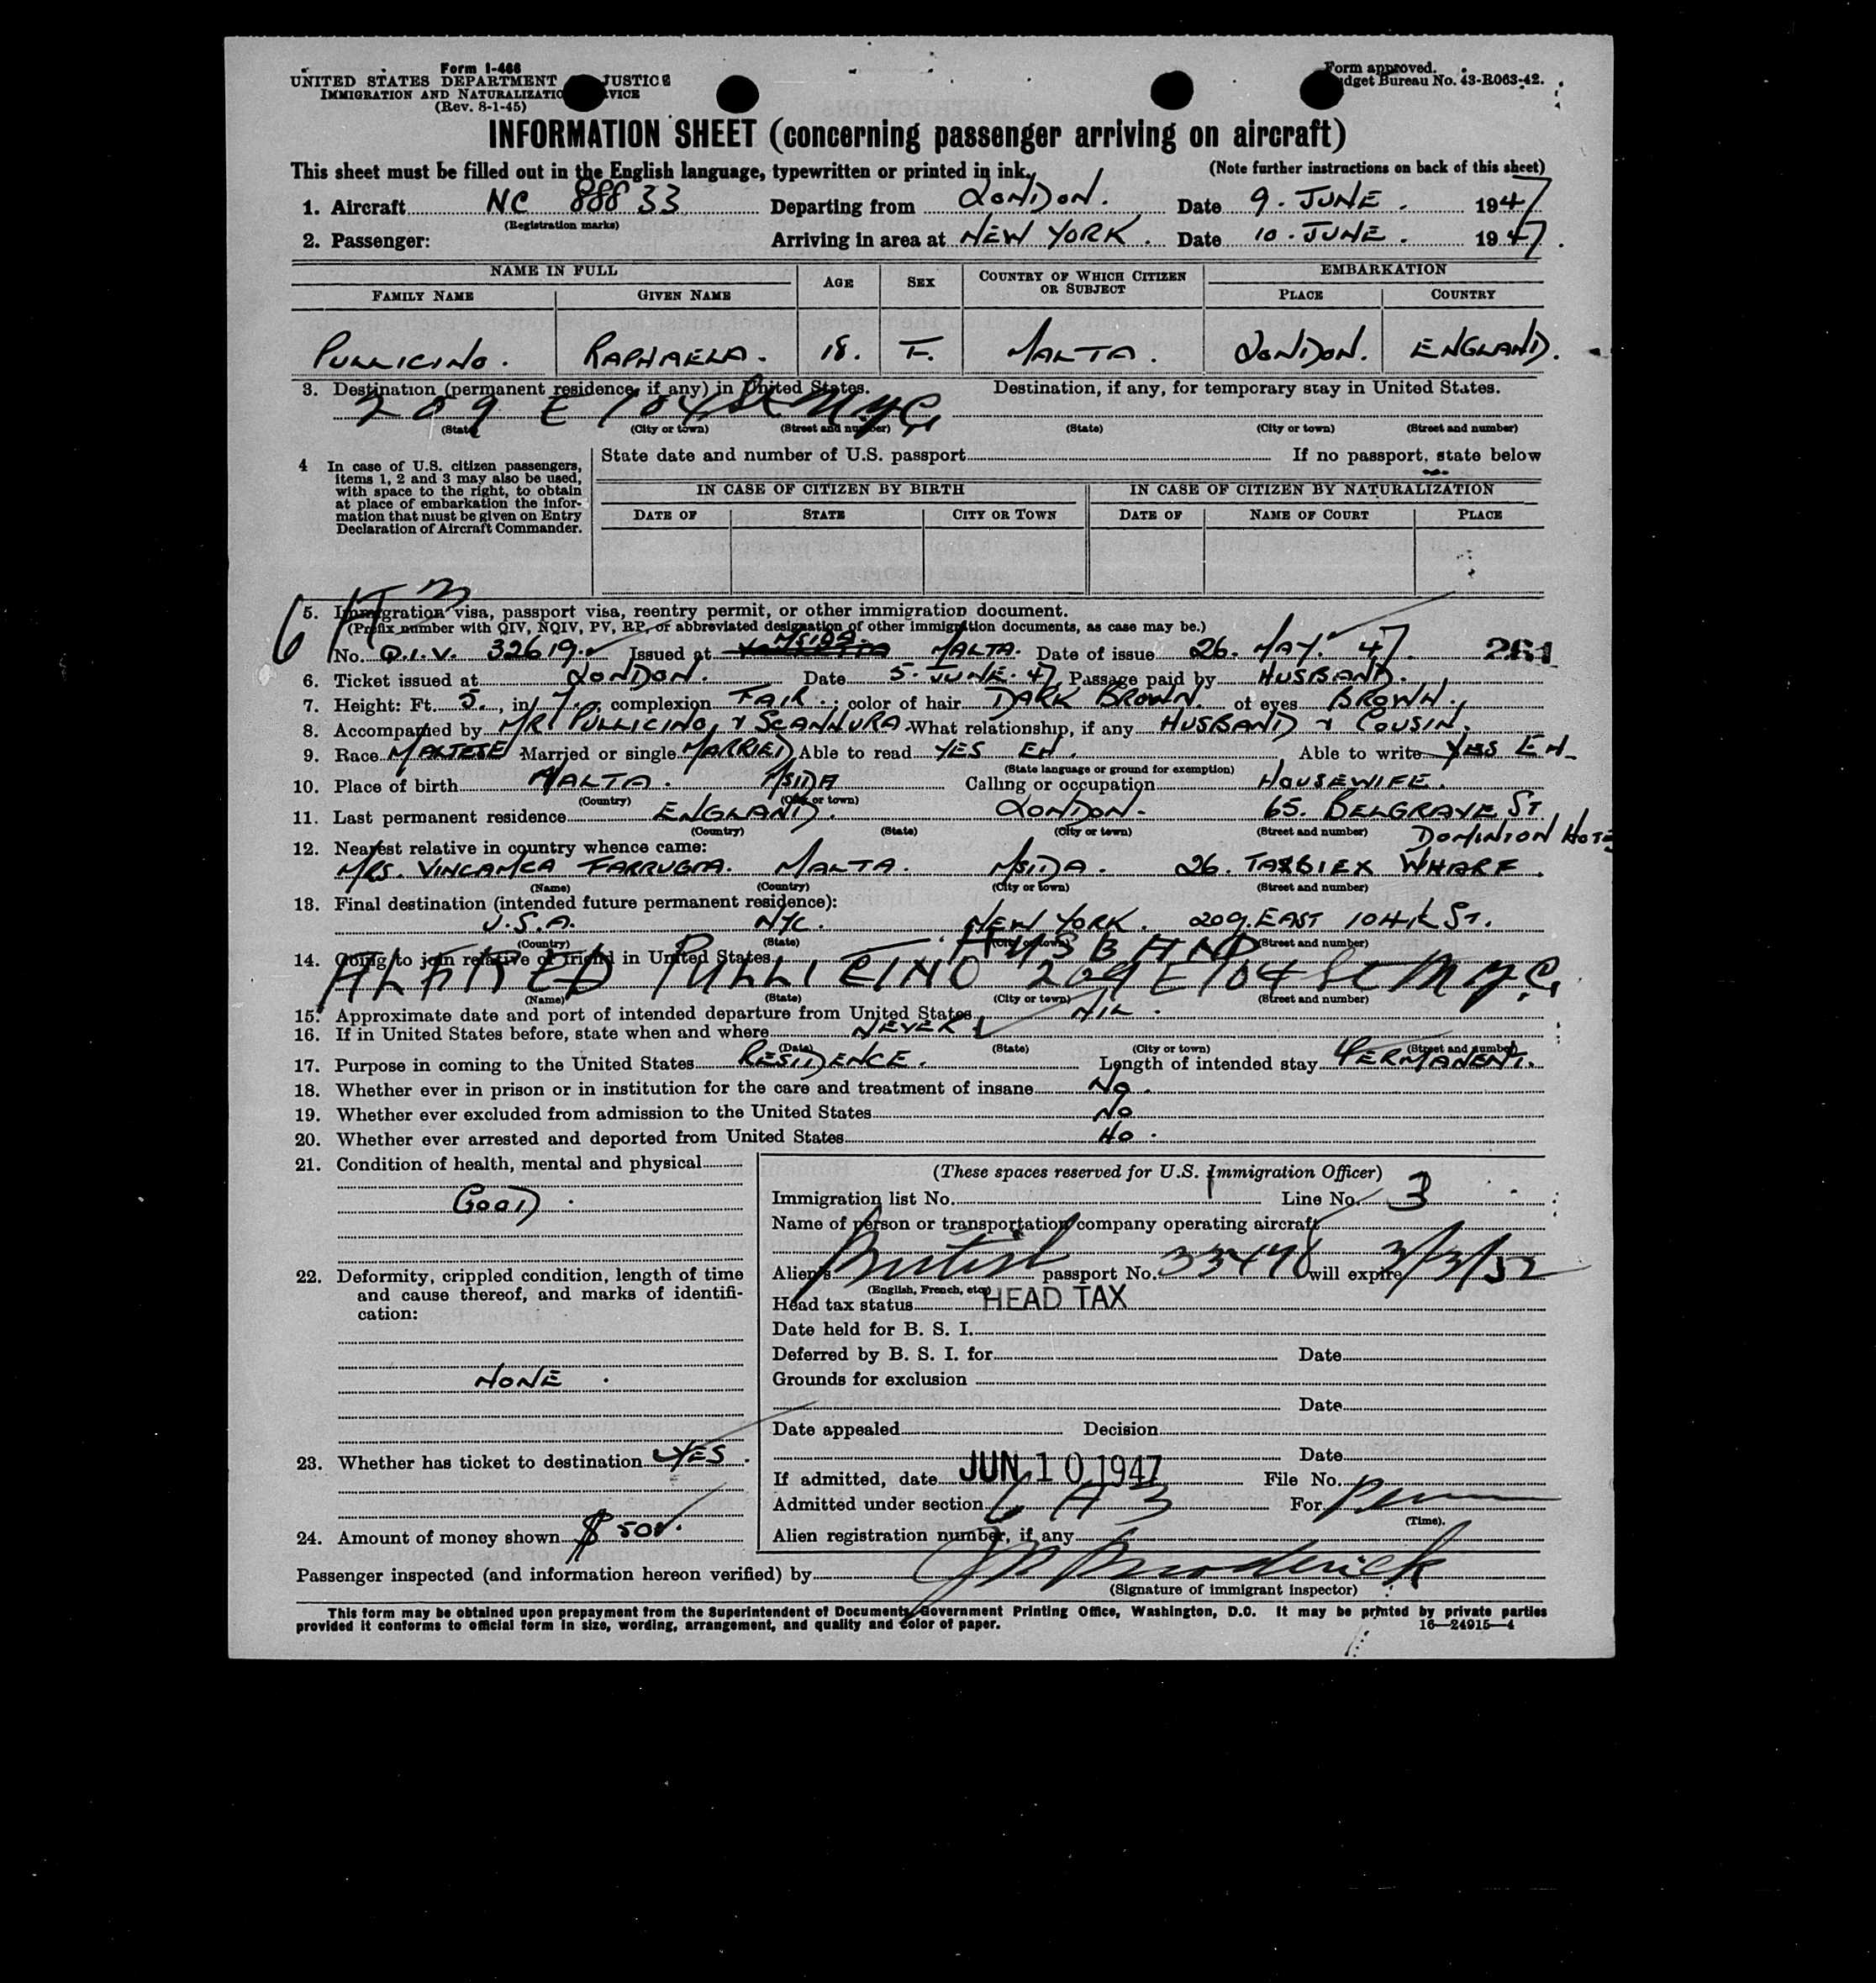 Form I-466
UNITED STATES DEPARTMENT JUSTICE
IMMIGRATION AND NATURALIZATIO VICE
(Rev. 8-1-45)
Form approved.
dget Bureau No. 43-R063-42.
INFORMATION SHEET (concerning passenger arriving on aircraft)
This sheet must be filled out in the English language, typewritten or printed in ink. (Note further instructions on back of this sheet)
1. Aircraft NC 88833 Departing from LONDON. Date 9. JUNE. 1947
(Registration marks)
2. Passenger: Arriving in area at NEW YORK. Date 10. JUNE. 1947.
NAME IN FULL AGE SEX COUNTRY OF WHICH CITIZEN OR SUBJECT EMBARKATION
FAMILY NAME GIVEN NAME PLACE COUNTRY
PULLICINO. RAPHAELA. 18. F. MALTA. LONDON. ENGLAND.
3. Destination (permanent residence, if any) in United States. Destination, if any, for temporary stay in United States.
209 E 104 St N.Y.C.
(State) (City or town) (Street and number) (State) (City or town) (Street and number)
4 In case of U.S. citizen passengers, items 1, 2 and 3 may also be used, with space to the right, to obtain at place of embarkation the information that must be given on Entry Declaration of Aircraft Commander.
State date and number of U.S. passport If no passport, state below
IN CASE OF CITIZEN BY BIRTH IN CASE OF CITIZEN BY NATURALIZATION
DATE OF STATE CITY OR TOWN DATE OF NAME OF COURT PLACE
6 A 3
5. Immigration visa, passport visa, reentry permit, or other immigration document.
(Prefix number with QIV, NQIV, PV, RP, or abbreviated designation of other immigration documents, as case may be.)
MSIDA.
No. Q.I.V. 32619. Issued at MALTA. Date of issue 26. MAY. 47. 261
6. Ticket issued at LONDON. Date 5. JUNE. 47. Passage paid by HUSBAND.
7. Height: Ft. 5., in. 7.; complexion FAIR.; color of hair DARK BROWN. of eyes BROWN.
8. Accompanied by MR. PULLICINO, & SCANNURA What relationship, if any HUSBAND & COUSIN.
9. Race MALTESE Married or single MARRIED Able to read YES EN. Able to write YES EN
(State language or ground for exemption)
10. Place of birth MALTA. MSIDA Calling or occupation HOUSEWIFE.
(Country) (City or town)
11. Last permanent residence ENGLAND. LONDON. 65. BELGRAVE ST.
(Country) (State) (City or town) (Street and number)
DOMINION HOTE
12. Nearest relative in country whence came:
MRS. FARRUGIA. MALTA. MSIDA. 26. TAXBIEX WHARF.
(Name) (Country) (City or town) (Street and number)
13. Final destination (intended future permanent residence):
U.S.A. NYC. NEW YORK. 209. EAST 104th ST.
(Country) (State) (City or town) (Street and number)
14. Going to join relative or friend in United States HUSBAND
ALFRED PULLICINO 209 E 104 St N.Y.C.
(Name) (State) (City or town) (Street and number)
15. Approximate date and port of intended departure from United States NIL.
16. If in United States before, state when and where NEVER
(Date) (State) (City or town) (Street and number)
17. Purpose in coming to the United States RESIDENCE. Length of intended stay PERMANENT.
18. Whether ever in prison or in institution for the care and treatment of insane No.
19. Whether ever excluded from admission to the United States No
20. Whether ever arrested and deported from United States No.
21. Condition of health, mental and physical
GOOD.
22. Deformity, crippled condition, length of time and cause thereof, and marks of identification:
NONE.
23. Whether has ticket to destination YES.
24. Amount of money shown $ 50
(These spaces reserved for U.S. Immigration Officer)
Immigration list No. Line No. 3
Name of person or transportation company operating aircraft
Alien's British passport No. 33478 will expire 3/3/52
(English, French, etc.)
Head tax status HEAD TAX
Date held for B. S. I.
Deferred by B. S. I. for Date
Grounds for exclusion
Date
Date appealed Decision
Date
If admitted, date JUN 10 1947 File No.
Admitted under section 6 A 3 For Perm
(Time).
Alien registration number, if any
Passenger inspected (and information hereon verified) by Broderick
(Signature of immigrant inspector)
This form may be obtained upon prepayment from the Superintendent of Documents, Government Printing Office, Washington, D.C. It may be printed by private parties
provided it conforms to official form in size, wording, arrangement, and quality and color of paper. 16—24915-4